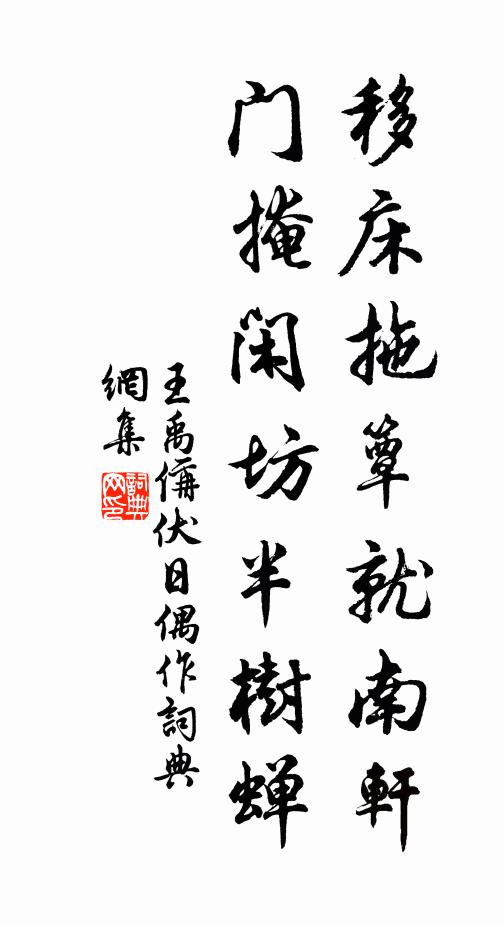 移床拖簟就南軒
門掩閑坊半樹蟬
王禹偁伏日偶作詞典
網集
詞典
网印